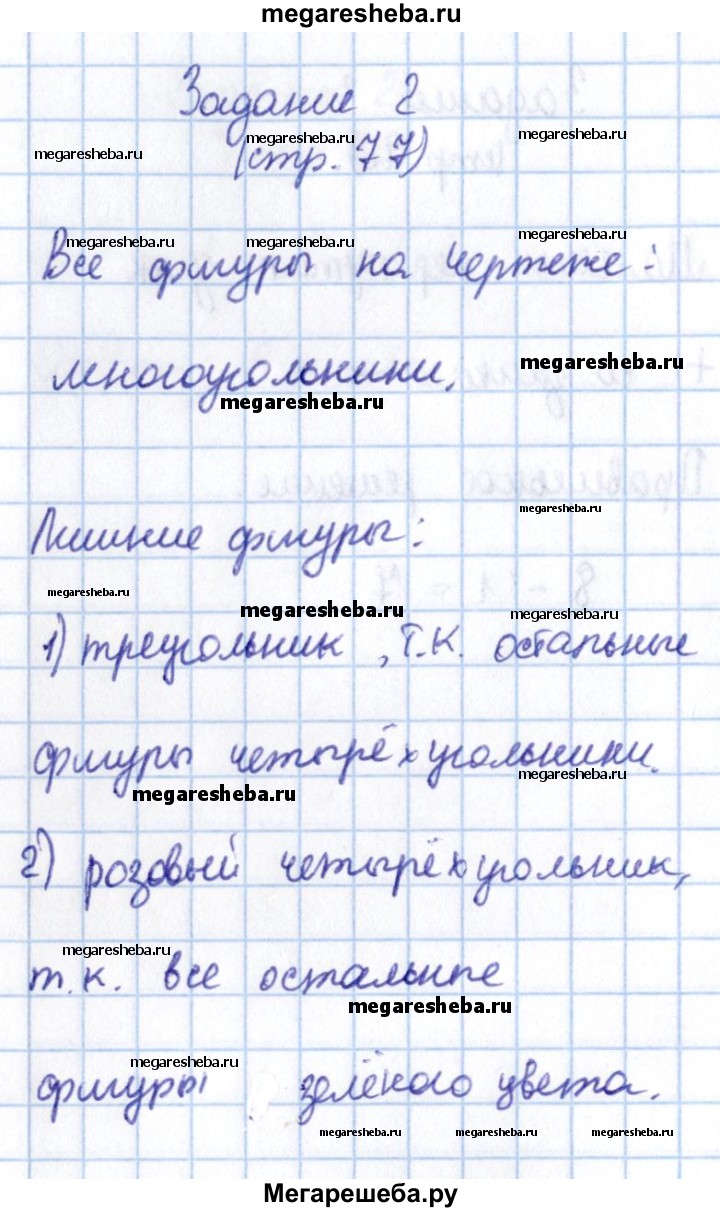 megaresheba.ru
Задание 2
megaresheba.ru
megaresheba.ru
megaresheba.ru
(стр. 77)
megaresheba.ru
megaresheba.ru
megaresheba.ru
Все фигуры на чертеже:
многоугольники.
megaresheba.ru
megaresheba.ru
Лишние фигуры:
megaresheba.ru
megaresheba.ru
megaresheba.ru
megaresheba.ru
1) треугольник, т.к. остальные
фигуры четырёхугольники.
megaresheba.ru
megaresheba.ru
2) розовый четырёхугольник,
megaresheba.ru
т.к. все остальные
megaresheba.ru
megaresheba.ru
фигуры зелёного цвета.
megaresheba.ru megaresheba.ru megaresheba.ru
Мегарешеба.ру